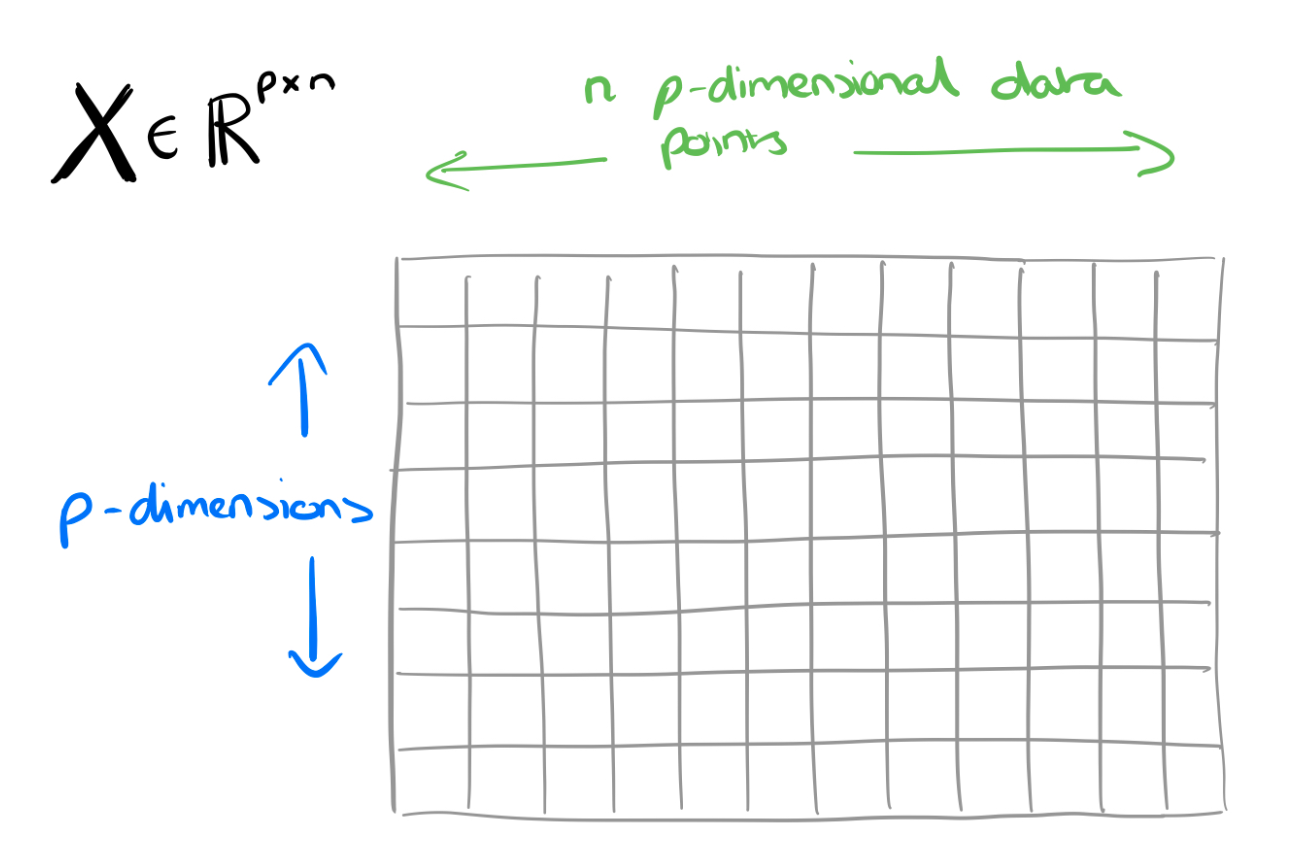 X ∈ ℝ^{p×n}
n p-dimensional data
points
p-dimensions